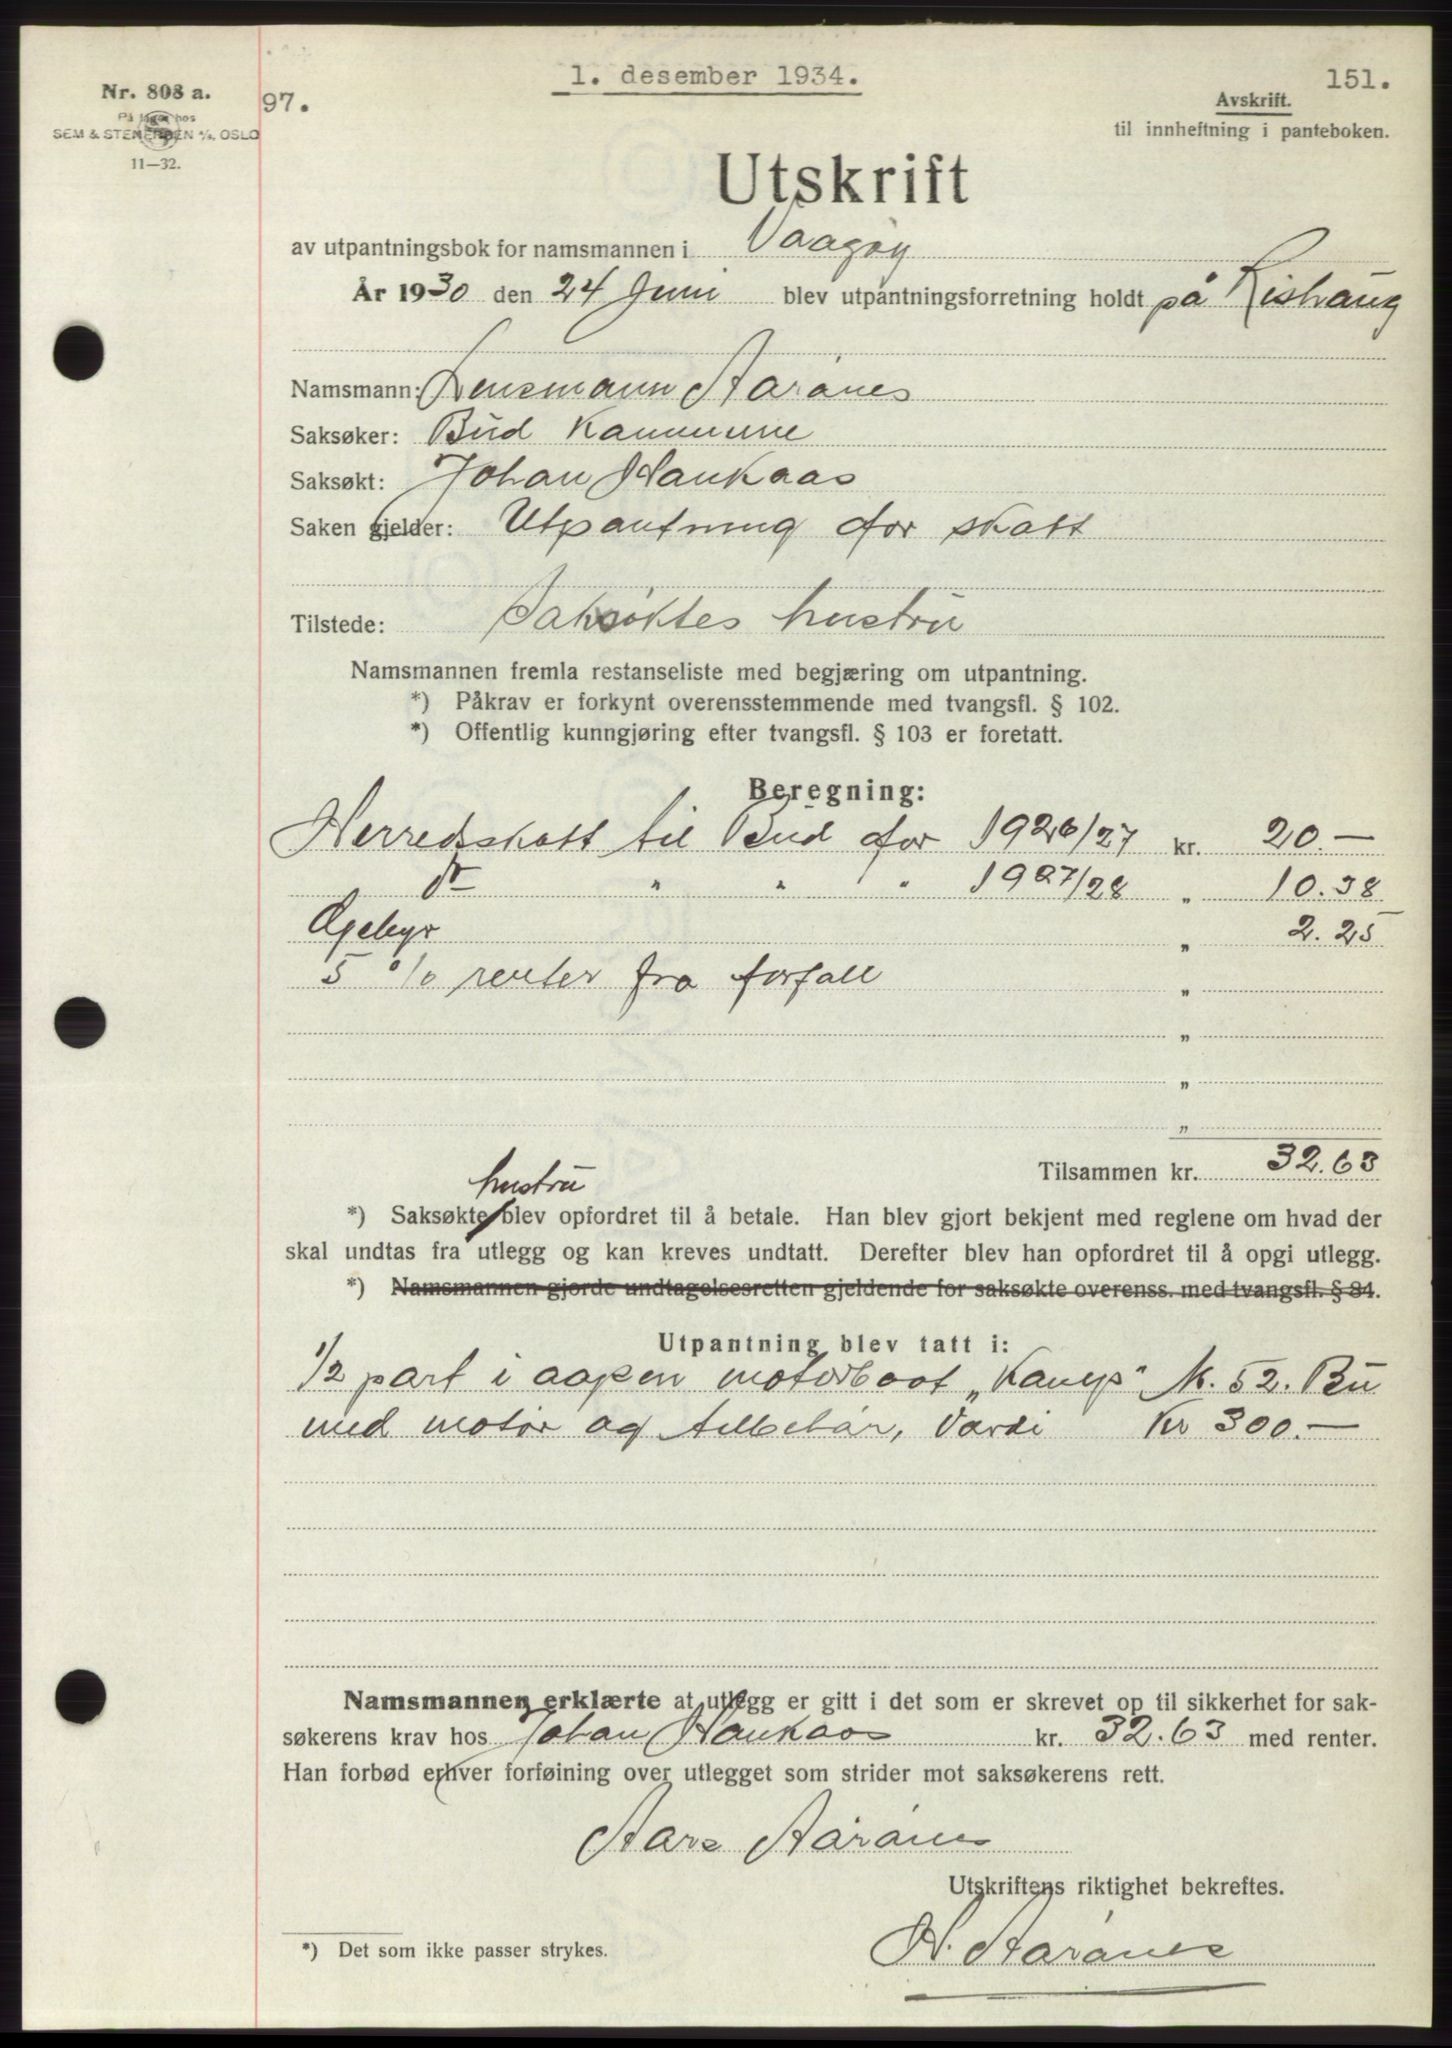 1. desember 1934.
151.
Nr. 803 a.
97.
Avskrift.
På lager hos
SEM & STENERSEN A/S, OSLO
til innheftning i panteboken.
11—32.
Utskrift
av utpantningsbok for namsmannen i Vaagøy
År 1930 den 24 Juni blev utpantningsforretning holdt på Rishaug
Namsmann: Lensmann Aarønes
Saksøker: Bud Kommune
Saksøkt: Johan Haukaas
Saken gjelder: Utpantning for skatt
Tilstede: Saksøktes hustru
Namsmannen fremla restanseliste med begjæring om utpantning.
*) Påkrav er forkynt overensstemmende med tvangsfl. § 102.
*) Offentlig kunngjøring efter tvangsfl. § 103 er foretatt.
Beregning:
Herredsskatt til Bud for 1926/27 kr. 20.—
do " " " 1927/28 " 10.38
Gebyr " 2.25
5 % renter fra forfall "
"
"
"
Tilsammen kr. 32.63
hustru
*) Saksøkte blev opfordret til å betale. Han blev gjort bekjent med reglene om hvad der
skal undtas fra utlegg og kan kreves undtatt. Derefter blev han opfordret til å opgi utlegg.
*) Namsmannen gjorde undtagelsesretten gjeldende for saksøkte overenss. med tvangsfl. § 84.
Utpantning blev tatt i:
1/2 part i aapen motorbaat „Kamp" M. 52. Bu
med motor og tilbehør, Værdi Kr 300.—
Namsmannen erklærte at utlegg er gitt i det som er skrevet op til sikkerhet for sak-
søkerens krav hos Johan Haukaas kr. 32.63 med renter.
Han forbød enhver forføining over utlegget som strider mot saksøkerens rett.
Aarønes
Utskriftens riktighet bekreftes.
*) Det som ikke passer strykes.
H. Aarønes